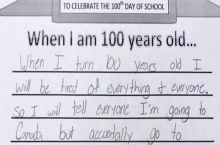 TO CELEBRATE THE 100th DAY OF SCHOOL
When I am 100 years old...
When I turn 100 years old I
will be tired of everything & everyone,
so I will tell everyone I'm going to
Canada but accidentally go to